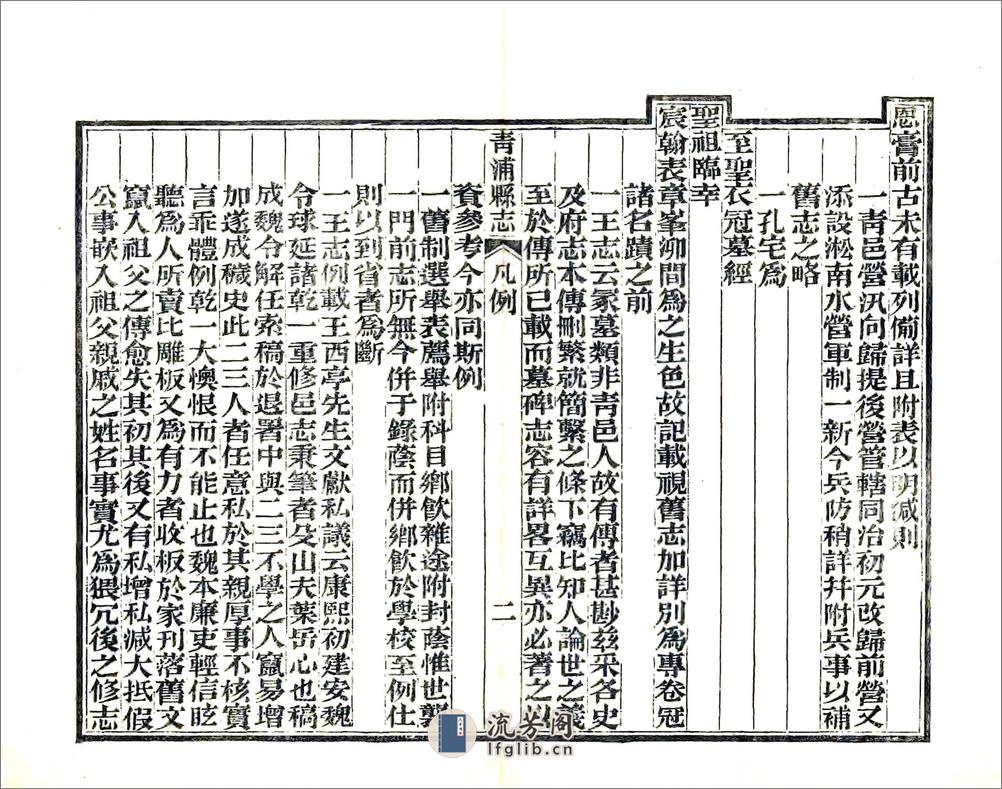 恩膏前古未有載列備詳且附表以明減則
一青邑營汛向歸提後營管轄同治初元改歸前營又
添設淞南水營軍制一新今兵防稍詳幷附兵事以補
舊志之略
一孔宅爲
至聖衣冠墓經
聖祖臨幸
宸翰表章峯泖間爲之生色故記載視舊志加詳別爲專卷冠
諸名蹟之前
一王志云冢墓類非青邑人故有傳者甚尠茲采各史
及府志本傳刪繁就簡繫之條下竊比知人論世之義
至於傳所已載而墓碑志容有詳畧互異亦必著之以
青浦縣志 凡例 二
資參考今亦同斯例
一舊制選舉表薦舉附科目鄉飲雜途附封蔭惟世襲
一門前志所無今併于錄蔭而併鄉飲於學校至例仕
則以到省者爲斷
一王志例載王西亭先生文獻私議云康熙初建安魏
令球延諸乾一重修邑志秉筆者殳山夫葉岳心也稿
成魏令解任索稿於退署中與二三不學之人竄易增
加遂成穢史此二三人者任意私於其親厚事不核實
言乖體例乾一大懊恨而不能止也魏本廉吏輕信眩
聽爲人所賣比雕板又爲有力者收板於家刊落舊文
竄入祖父之傳愈失其初其後又有私增私減大抵假
公事嵌入祖父親戚之姓名事實尤爲猥冗後之修志
流芳阁
lfglib.cn